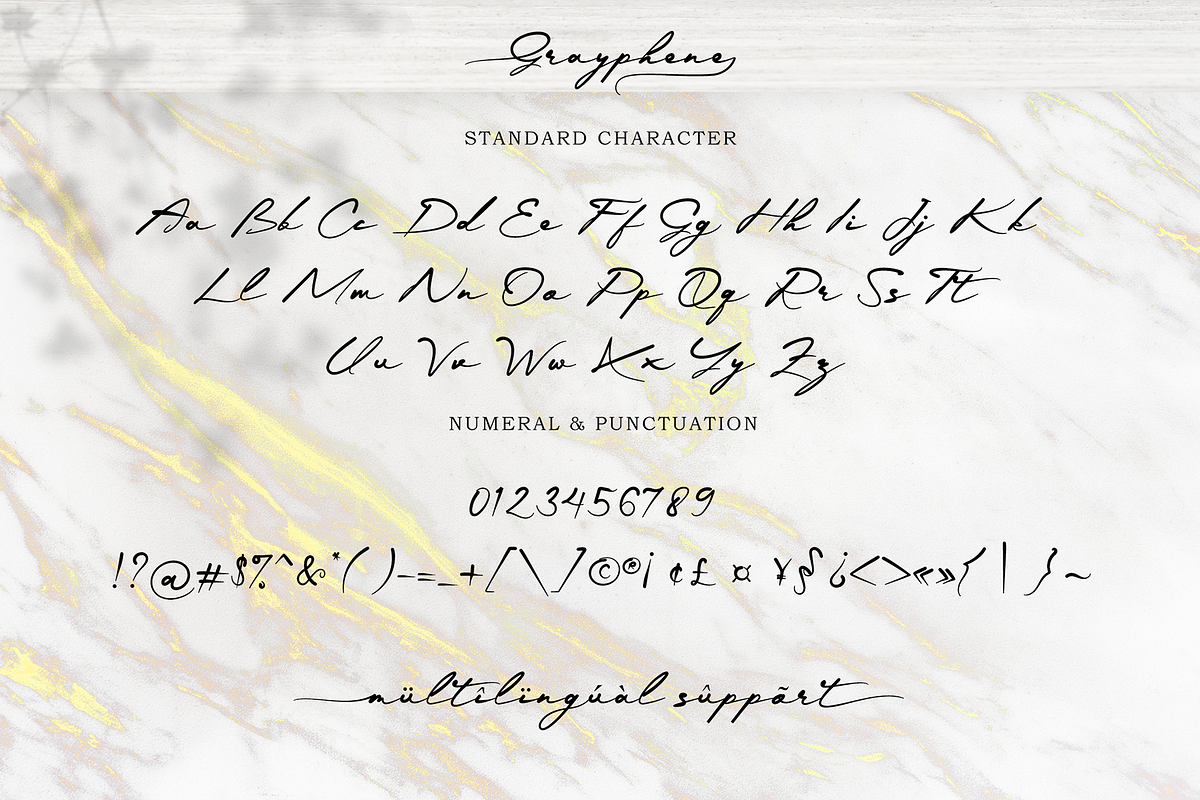 Grayphene
STANDARD CHARACTER
Aa Bb Cc Dd Ee Ff Gg Hh Ii Jj Kk
Ll Mm Nn Oo Pp Qq Rr Ss Tt
Uu Vv Ww Xx Yy Zz
NUMERAL & PUNCTUATION
0123456789
!?@#$%^&*( )-=_+[\]©®¡ ¢£ ¤ ¥§¿<>«»{ | } ~
mültîlïngúàl sûppãrt